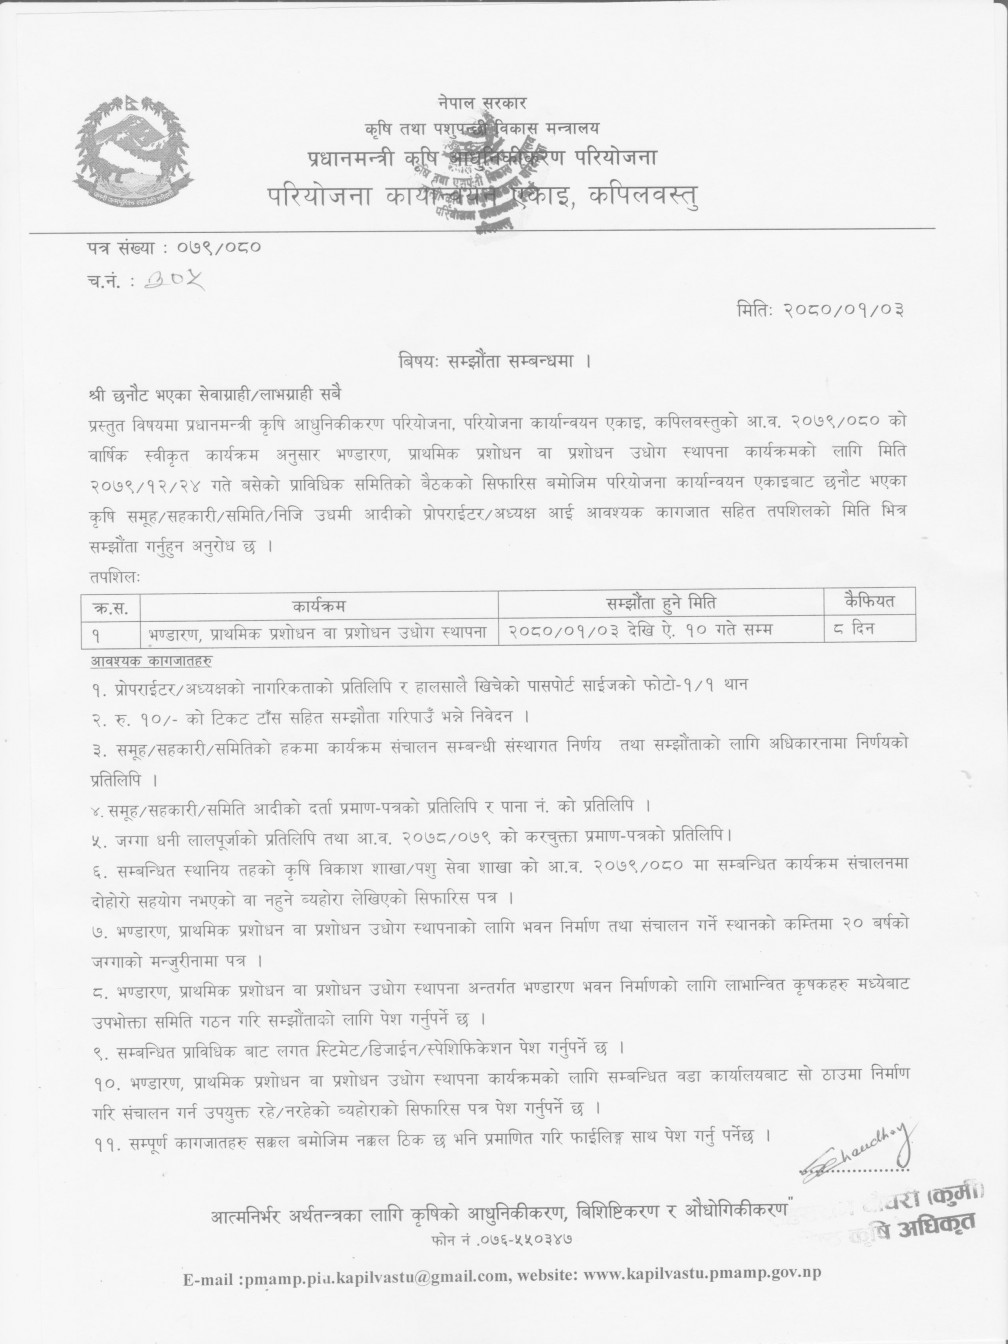 नेपाल सरकार
कृषि तथा पशुपन्छी विकास मन्त्रालय
प्रधानमन्त्री कृषि आधुनिकीकरण परियोजना
परियोजना कार्यान्वयन एकाइ, कपिलवस्तु
पत्र संख्या : ०७९/०८०
च.नं. : ३०५
मितिः २०८०/०१/०३
बिषयः सम्झौता सम्बन्धमा ।
श्री छनौट भएका सेवाग्राही/लाभग्राही सबै
प्रस्तुत विषयमा प्रधानमन्त्री कृषि आधुनिकीकरण परियोजना, परियोजना कार्यान्वयन एकाइ, कपिलवस्तुको आ.व. २०७९/०८० को
वार्षिक स्वीकृत कार्यक्रम अनुसार भण्डारण, प्राथमिक प्रशोधन वा प्रशोधन उधोग स्थापना कार्यक्रमको लागि मिति
२०७९/१२/२४ गते बसेको प्राविधिक समितिको बैठकको सिफारिस बमोजिम परियोजना कार्यान्वयन एकाइबाट छनौट भएका
कृषि समूह/सहकारी/समिति/निजि उधमी आदीको प्रोपराईटर/अध्यक्ष आई आवश्यक कागजात सहित तपशिलको मिति भित्र
सम्झौता गर्नुहुन अनुरोध छ ।
तपशिलः
क्र.स. कार्यक्रम सम्झौता हुने मिति कैफियत
१ भण्डारण, प्राथमिक प्रशोधन वा प्रशोधन उधोग स्थापना २०८०/०१/०३ देखि ऐ. १० गते सम्म ८ दिन
आवश्यक कागजातहरु
१. प्रोपराईटर/अध्यक्षको नागरिकताको प्रतिलिपि र हालसालै खिचेको पासपोर्ट साईजको फोटो-१/१ थान
२. रु. १०/- को टिकट टाँस सहित सम्झौता गरिपाउँ भन्ने निवेदन ।
३. समूह/सहकारी/समितिको हकमा कार्यक्रम संचालन सम्बन्धी संस्थागत निर्णय तथा सम्झौताको लागि अधिकारनामा निर्णयको
प्रतिलिपि ।
४. समूह/सहकारी/समिति आदीको दर्ता प्रमाण-पत्रको प्रतिलिपि र पाना नं. को प्रतिलिपि ।
५. जग्गा धनी लालपूर्जाको प्रतिलिपि तथा आ.व. २०७८/०७९ को करचुक्ता प्रमाण-पत्रको प्रतिलिपि।
६. सम्बन्धित स्थानिय तहको कृषि विकाश शाखा/पशु सेवा शाखा को आ.व. २०७९/०८० मा सम्बन्धित कार्यक्रम संचालनमा
दोहोरो सहयोग नभएको वा नहुने व्यहोरा लेखिएको सिफारिस पत्र ।
७. भण्डारण, प्राथमिक प्रशोधन वा प्रशोधन उधोग स्थापनाको लागि भवन निर्माण तथा संचालन गर्ने स्थानको कम्तिमा २० बर्षको
जग्गाको मन्जुरीनामा पत्र ।
८. भण्डारण, प्राथमिक प्रशोधन वा प्रशोधन उधोग स्थापना अन्तर्गत भण्डारण भवन निर्माणको लागि लाभान्वित कृषकहरु मध्येबाट
उपभोक्ता समिति गठन गरि सम्झौताको लागि पेश गर्नुपर्ने छ ।
९. सम्बन्धित प्राविधिक बाट लगत स्टिमेट/डिजाईन/स्पेशिफिकेशन पेश गर्नुपर्ने छ ।
१०. भण्डारण, प्राथमिक प्रशोधन वा प्रशोधन उधोग स्थापना कार्यक्रमको लागि सम्बन्धित वडा कार्यालयबाट सो ठाउमा निर्माण
गरि संचालन गर्न उपयुक्त रहे/नरहेको व्यहोराको सिफारिस पत्र पेश गर्नुपर्ने छ ।
११. सम्पूर्ण कागजातहरु सक्कल बमोजिम नक्कल ठिक छ भनि प्रमाणित गरि फाईलिङ्ग साथ पेश गर्नु पर्नेछ ।
Chaudhary
(कुर्मी)
कृषि अधिकृत
आत्मनिर्भर अर्थतन्त्रका लागि कृषिको आधुनिकीकरण, बिशिष्टिकरण र औधोगिकीकरण"
फोन नं .०७६-५५०३४७
E-mail :pmamp.piu.kapilvastu@gmail.com, website: www.kapilvastu.pmamp.gov.np